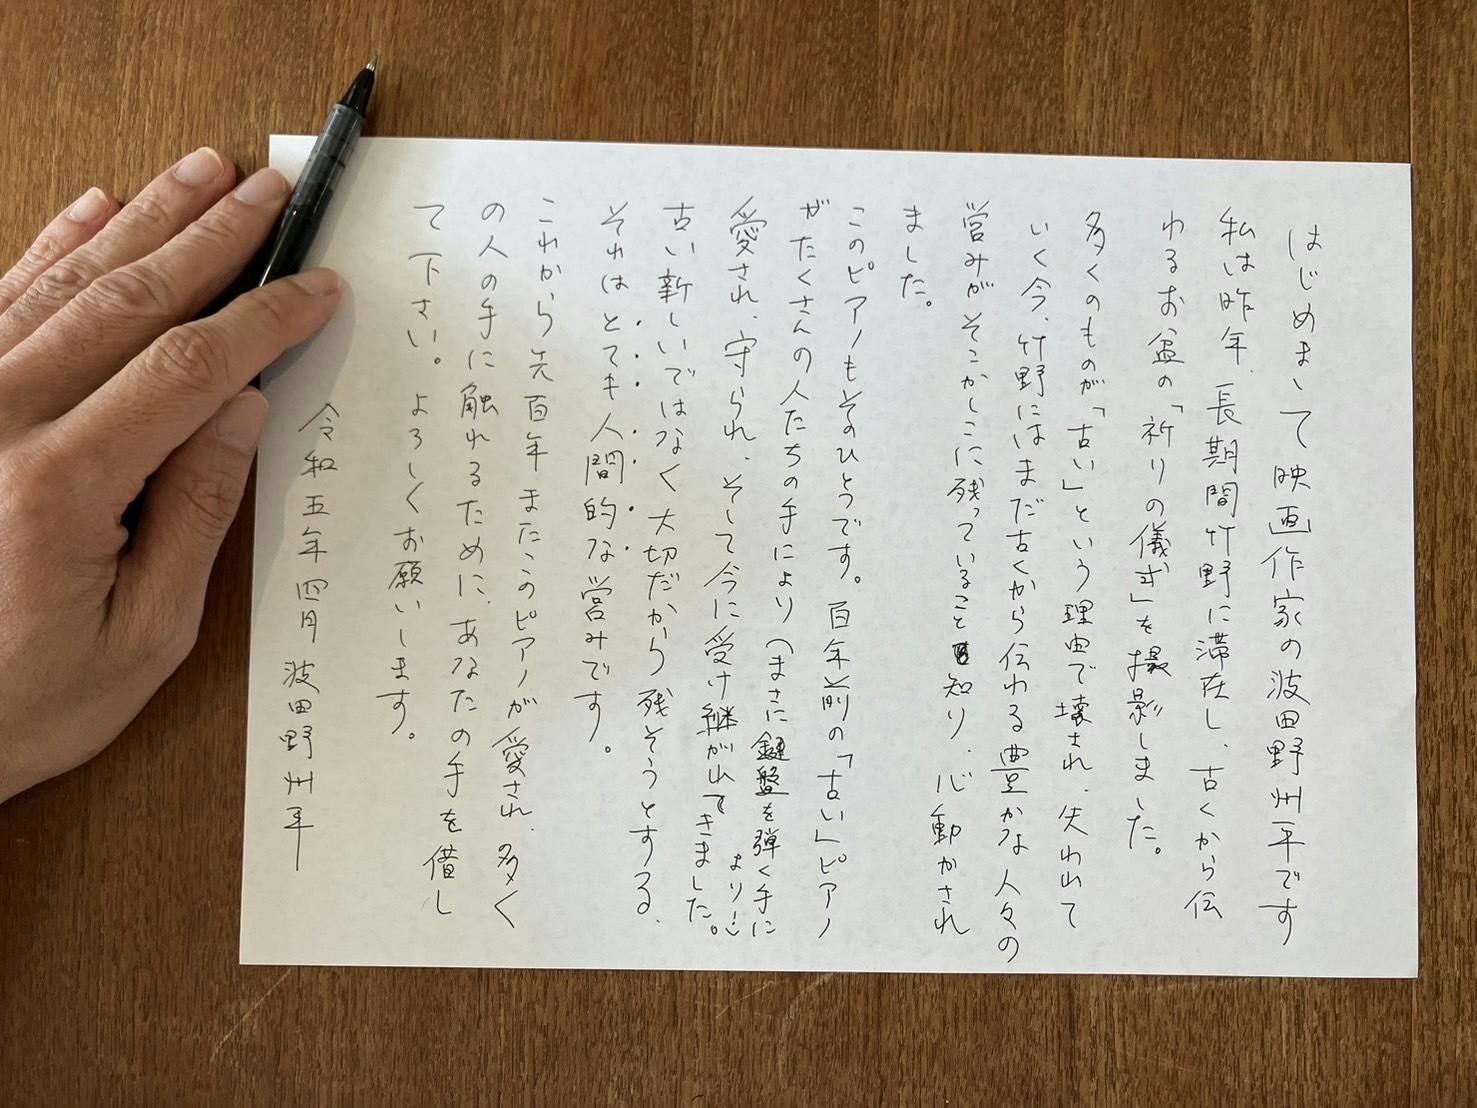 はじめまして映画作家の波田野州平です
私は昨年、長期間竹野に滞在し、古くから伝
わるお盆の「祈りの儀式」を撮影しました。
多くのものが「古い」という理由で壊され、失われて
いく今、竹野にはまだ古くから伝わる豊かな人々の
営みがそこかしこに残っていること知り、心動かされ
ました。
このピアノもそのひとつです。百年前の「古い」ピアノ
がたくさんの人たちの手により(まさに鍵盤を弾く手に
より!)
愛され、守られ、そして今に受け継がれてきました。
古い新しいではなく大切だから残そうとする、
それはとても人間的な営みです。
これから先百年またこのピアノが愛され、多く
の人の手に触れるために、あなたの手を借し
て下さい。よろしくお願いします。
令和五年四月 波田野州平